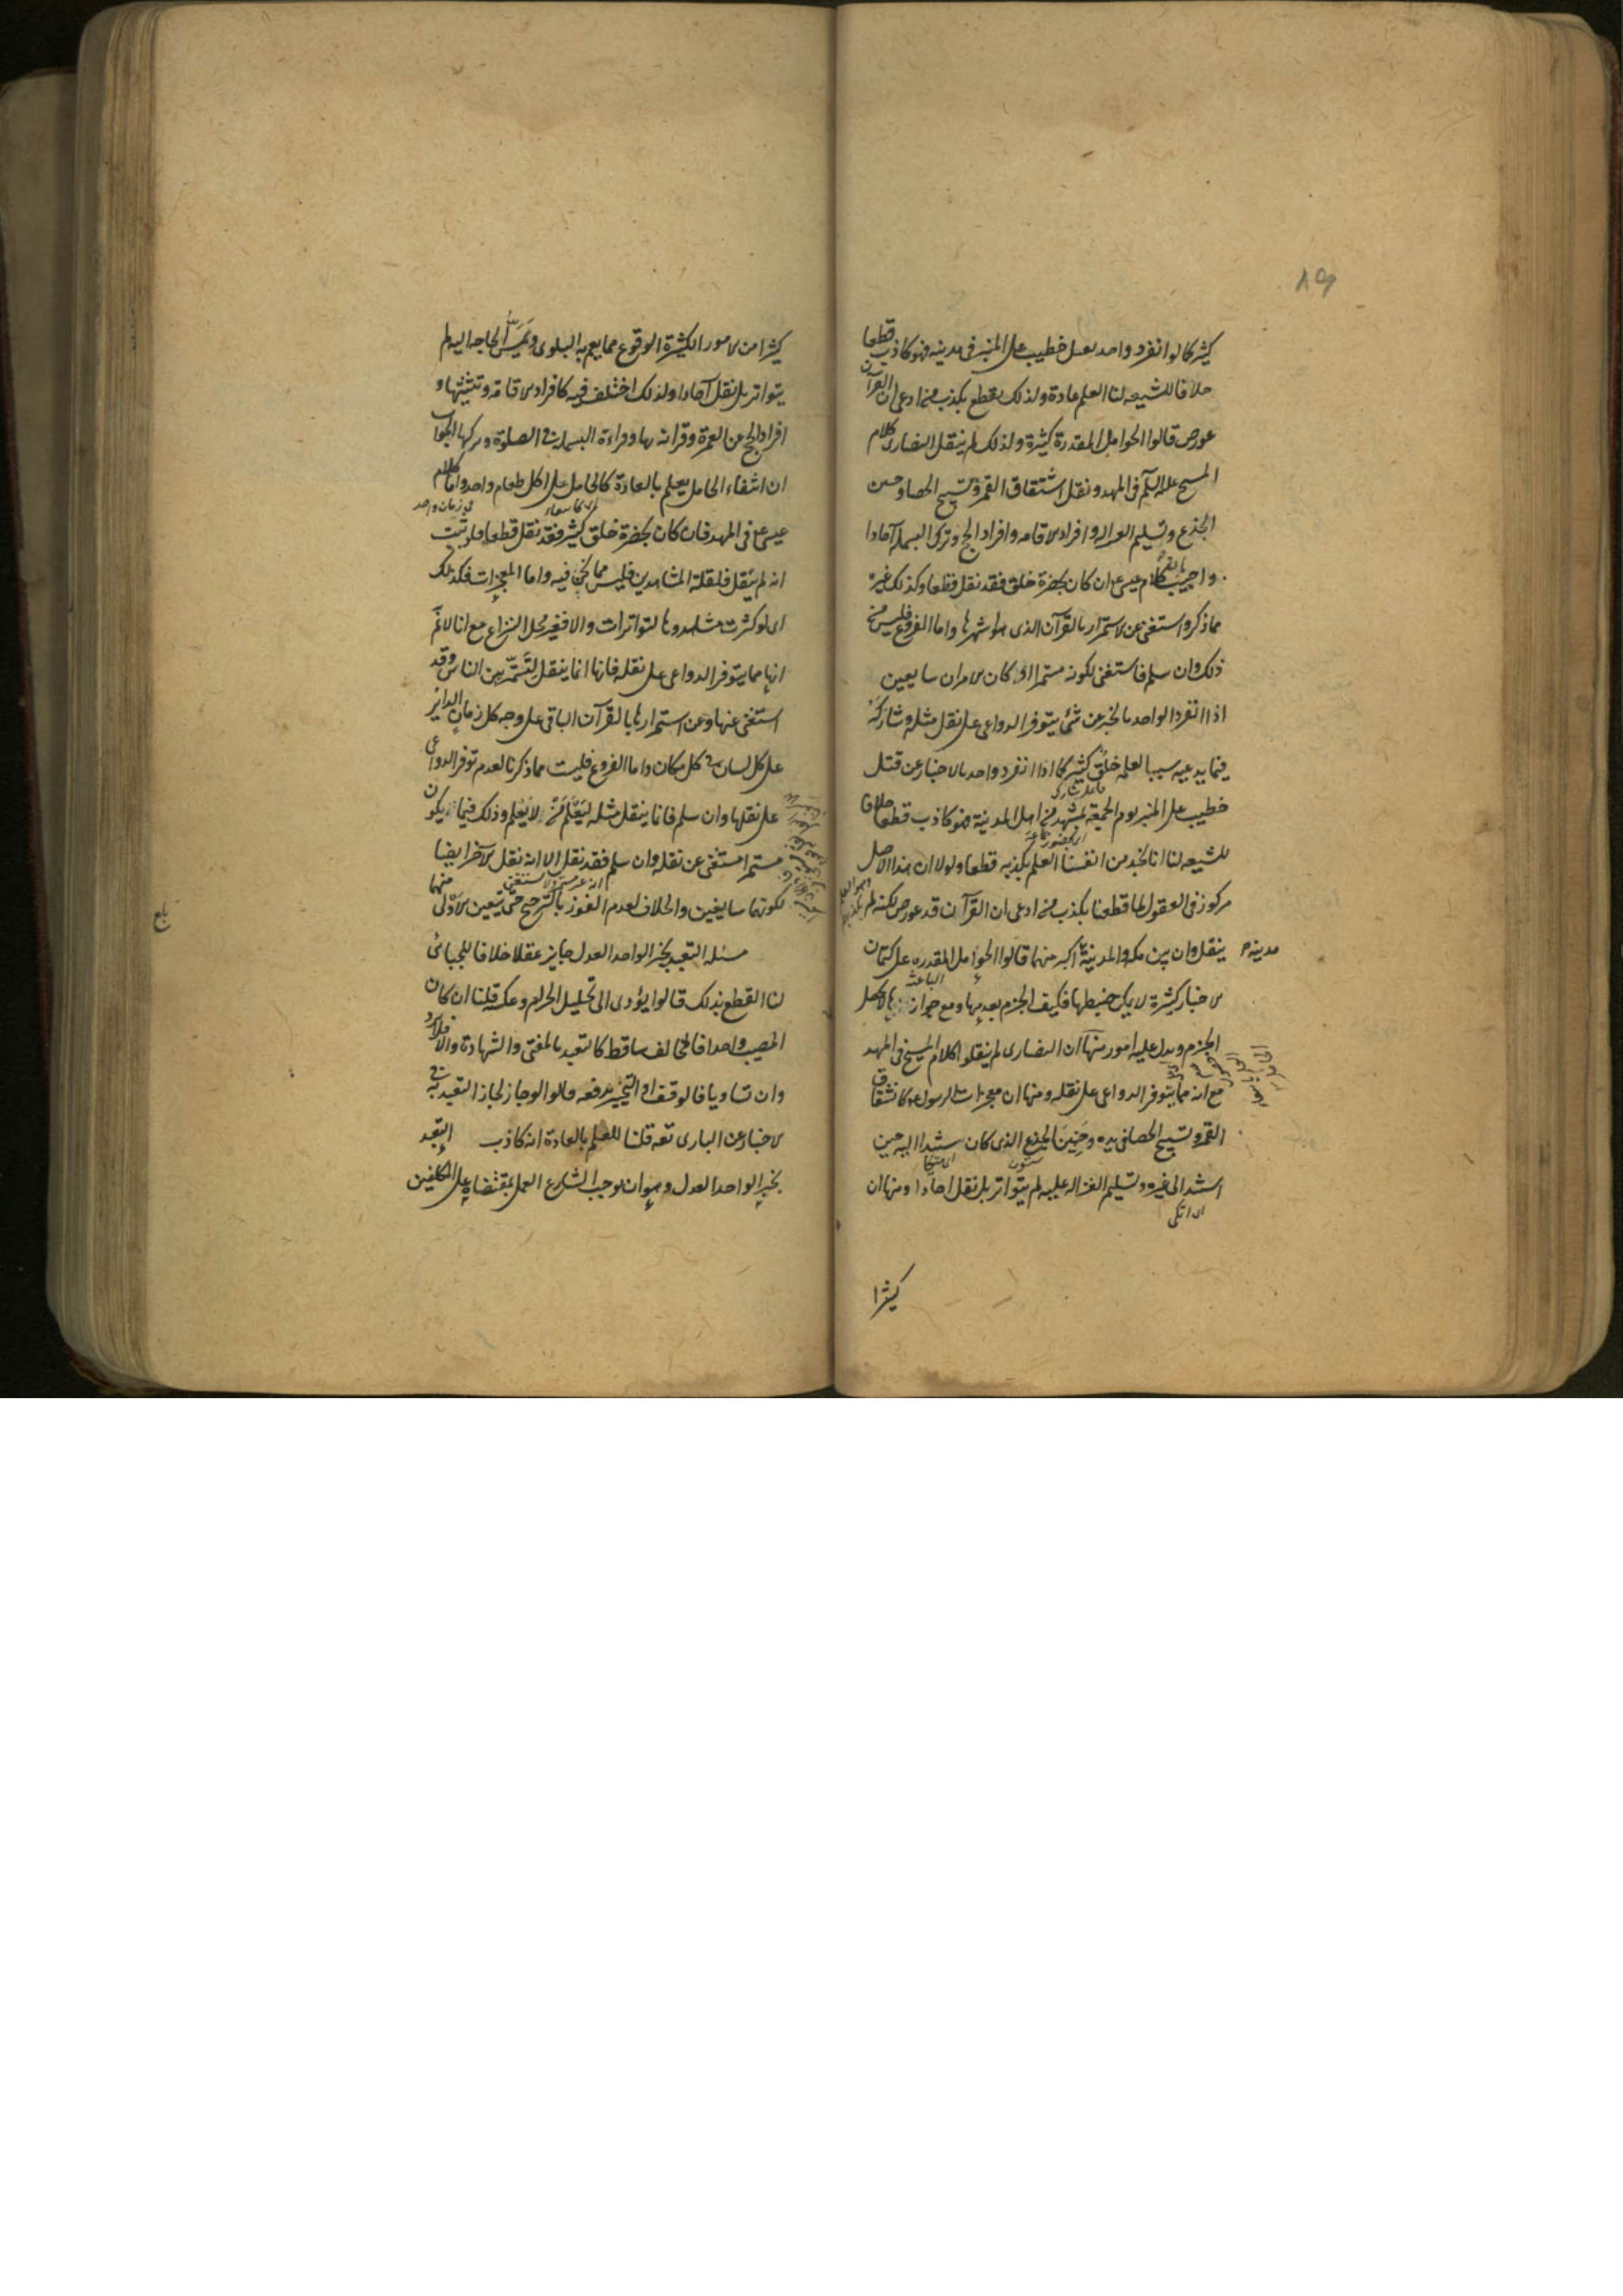 كثير كما لو انفرد واحد بقتل خطيب على المنبر فى مدينه فهو كاذب قطعا
خلافا للشيعه لنا العلم عادة ولذلك يقطع بكذب من ادعى ان القرآن
عورض قالوا الحوامل المقدرة كثيرة ولذلك لم ينقل النصارى كلام
المسيح عليه السلم فى المهد ونقل انشقاق القمر وتسبيح الحصا وحنين
الجذع وتسليم الغزاله وافراد الاقامه وافراد الحج وترك البسمله آحادا
واجيب بان كلام عيسى ان كان بحضرة خلق فقد نقل قطعا وكذلك غيره
مما ذكر واستغنى عن الاستمرار بالقرآن الذى هو اشهرها واما الفروع فليس من
ذلك وان سلم فاستغنى لكونه مستمرا او كان الامران سايغين
اذا انفرد الواحد بالخبر عن شئ يتوفر الدواعى على نقل مثله وشاركه
فيما يدعيه سببا لعلمه خلق كثير كما اذا انفرد واحد بالاخبار عن قتل
خطيب على المنبر يوم الجمعة بمشهد من اهل المدينة فهو كاذب قطعا خلافا
للشيعه لنا انا نجد من انفسنا العلم بكذبه قطعا ولولا ان هذا الاصل
مركوز فى العقول لما قطعنا بكذب من ادعى ان القرآن قد عورض لكنه لم
ينقل وان بين مكه والمدينة اكبر منهما قالوا الحوامل المقدره على كتمان
مدينه
الاخبار كثيرة لا يمكن ضبطها فكيف الجزم بعدمها ومع جوازها لا يحصل
الجزم ويدل عليه امور منها ان النصارى لم ينقلوا كلام المسيح فى المهد
مع انه مما يتوفر الدواعى على نقله ومنها ان معجزات الرسول كانشقاق
القمر وتسبيح الحصا فى يده وحنين الجذع الذى كان يستند اليه حين
استند الى غيره وتسليم الغزاله عليه لم يتواتر بل نقل احادا ومنها ان
كثيرا
كثيرا من الامور الكثيرة الوقوع مما يعم به البلوى وتمس الحاجه اليه لم
يتواتر بل نقل آحادا ولذلك اختلف فيه كافراد الاقامة وتثنيتها و
افراد الحج عن العمرة وقرانه بها وقراءة البسملة فى الصلوة وتركها الجواب
ان انتفاء الحامل يعلم بالعادة كالحامل على اكل طعام واحد واما كلام
فى زمان واحد
عيسى فى المهد فان كان بحضرة خلق كثير فقد نقل قطعا ولو ثبت
انه لم ينقل فلقلة المشاهدين فليس مما نحن فيه واما المعجزات فكذلك
اى لو كثرت مشاهدوها لتواترات والا فغير محل النزاع مع انا لا نم
انها مما يتوفر الدواعى على نقله فانها انما ينقل لتستمر بين الناس وقد
استغنى عنها وعن استمرارها بالقرآن الباقى على وجه كل زمان الدائر
على كل لسان فى كل مكان واما الفروع فليست مما ذكرنا لعدم توفر الدواعى
على نقلها وان سلم فانما ينقل مثله ليعلم من لا يعلم وذلك فيما يكون
مستمرا مستغنى عن نقله وان سلم فقد نقل الا انه نقل الآخر ايضا
لكونهما سايغين والخلاف لعدم الفوز بالترجيح حتى يتعين الاولى منهما
مسئله التعبد بخبر الواحد العدل جايز عقلا خلافا للجبائى
لنا القطع بذلك قالوا يؤدى الى تحليل الحرام وعكسه قلنا ان كان
المصيب واحدا فالمخالف ساقط كالتعبد بالمفتى والشهادة والا فلا يرد
وان تساويا فالوقف او التخيير يدفعه قالوا لو جاز لجاز التعبد به فى
الاخبار عن البارى تعه قلنا للعلم بالعادة انه كاذب التعبد
بخبر الواحد العدل وهو ان يوجب الشارع العمل بمقتضاه على المكلفين